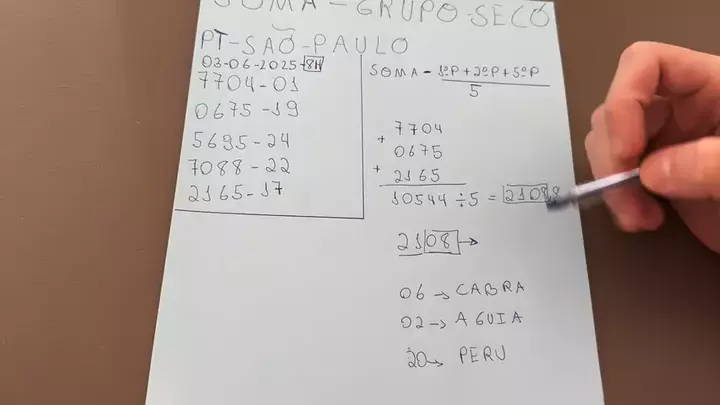 SOMA - GRUPO SECO
PT-SÃO-PAULO
03-06-2025-8H
7704-01
0675-19
5695-24
7088-22
2165-17
SOMA - 1ºP + 2ºP + 5ºP
5
7704
+ 0675
+ 2165
10544 ÷ 5 = 2108,8
2108 →
06 → CABRA
02 → AGUIA
20 → PERU